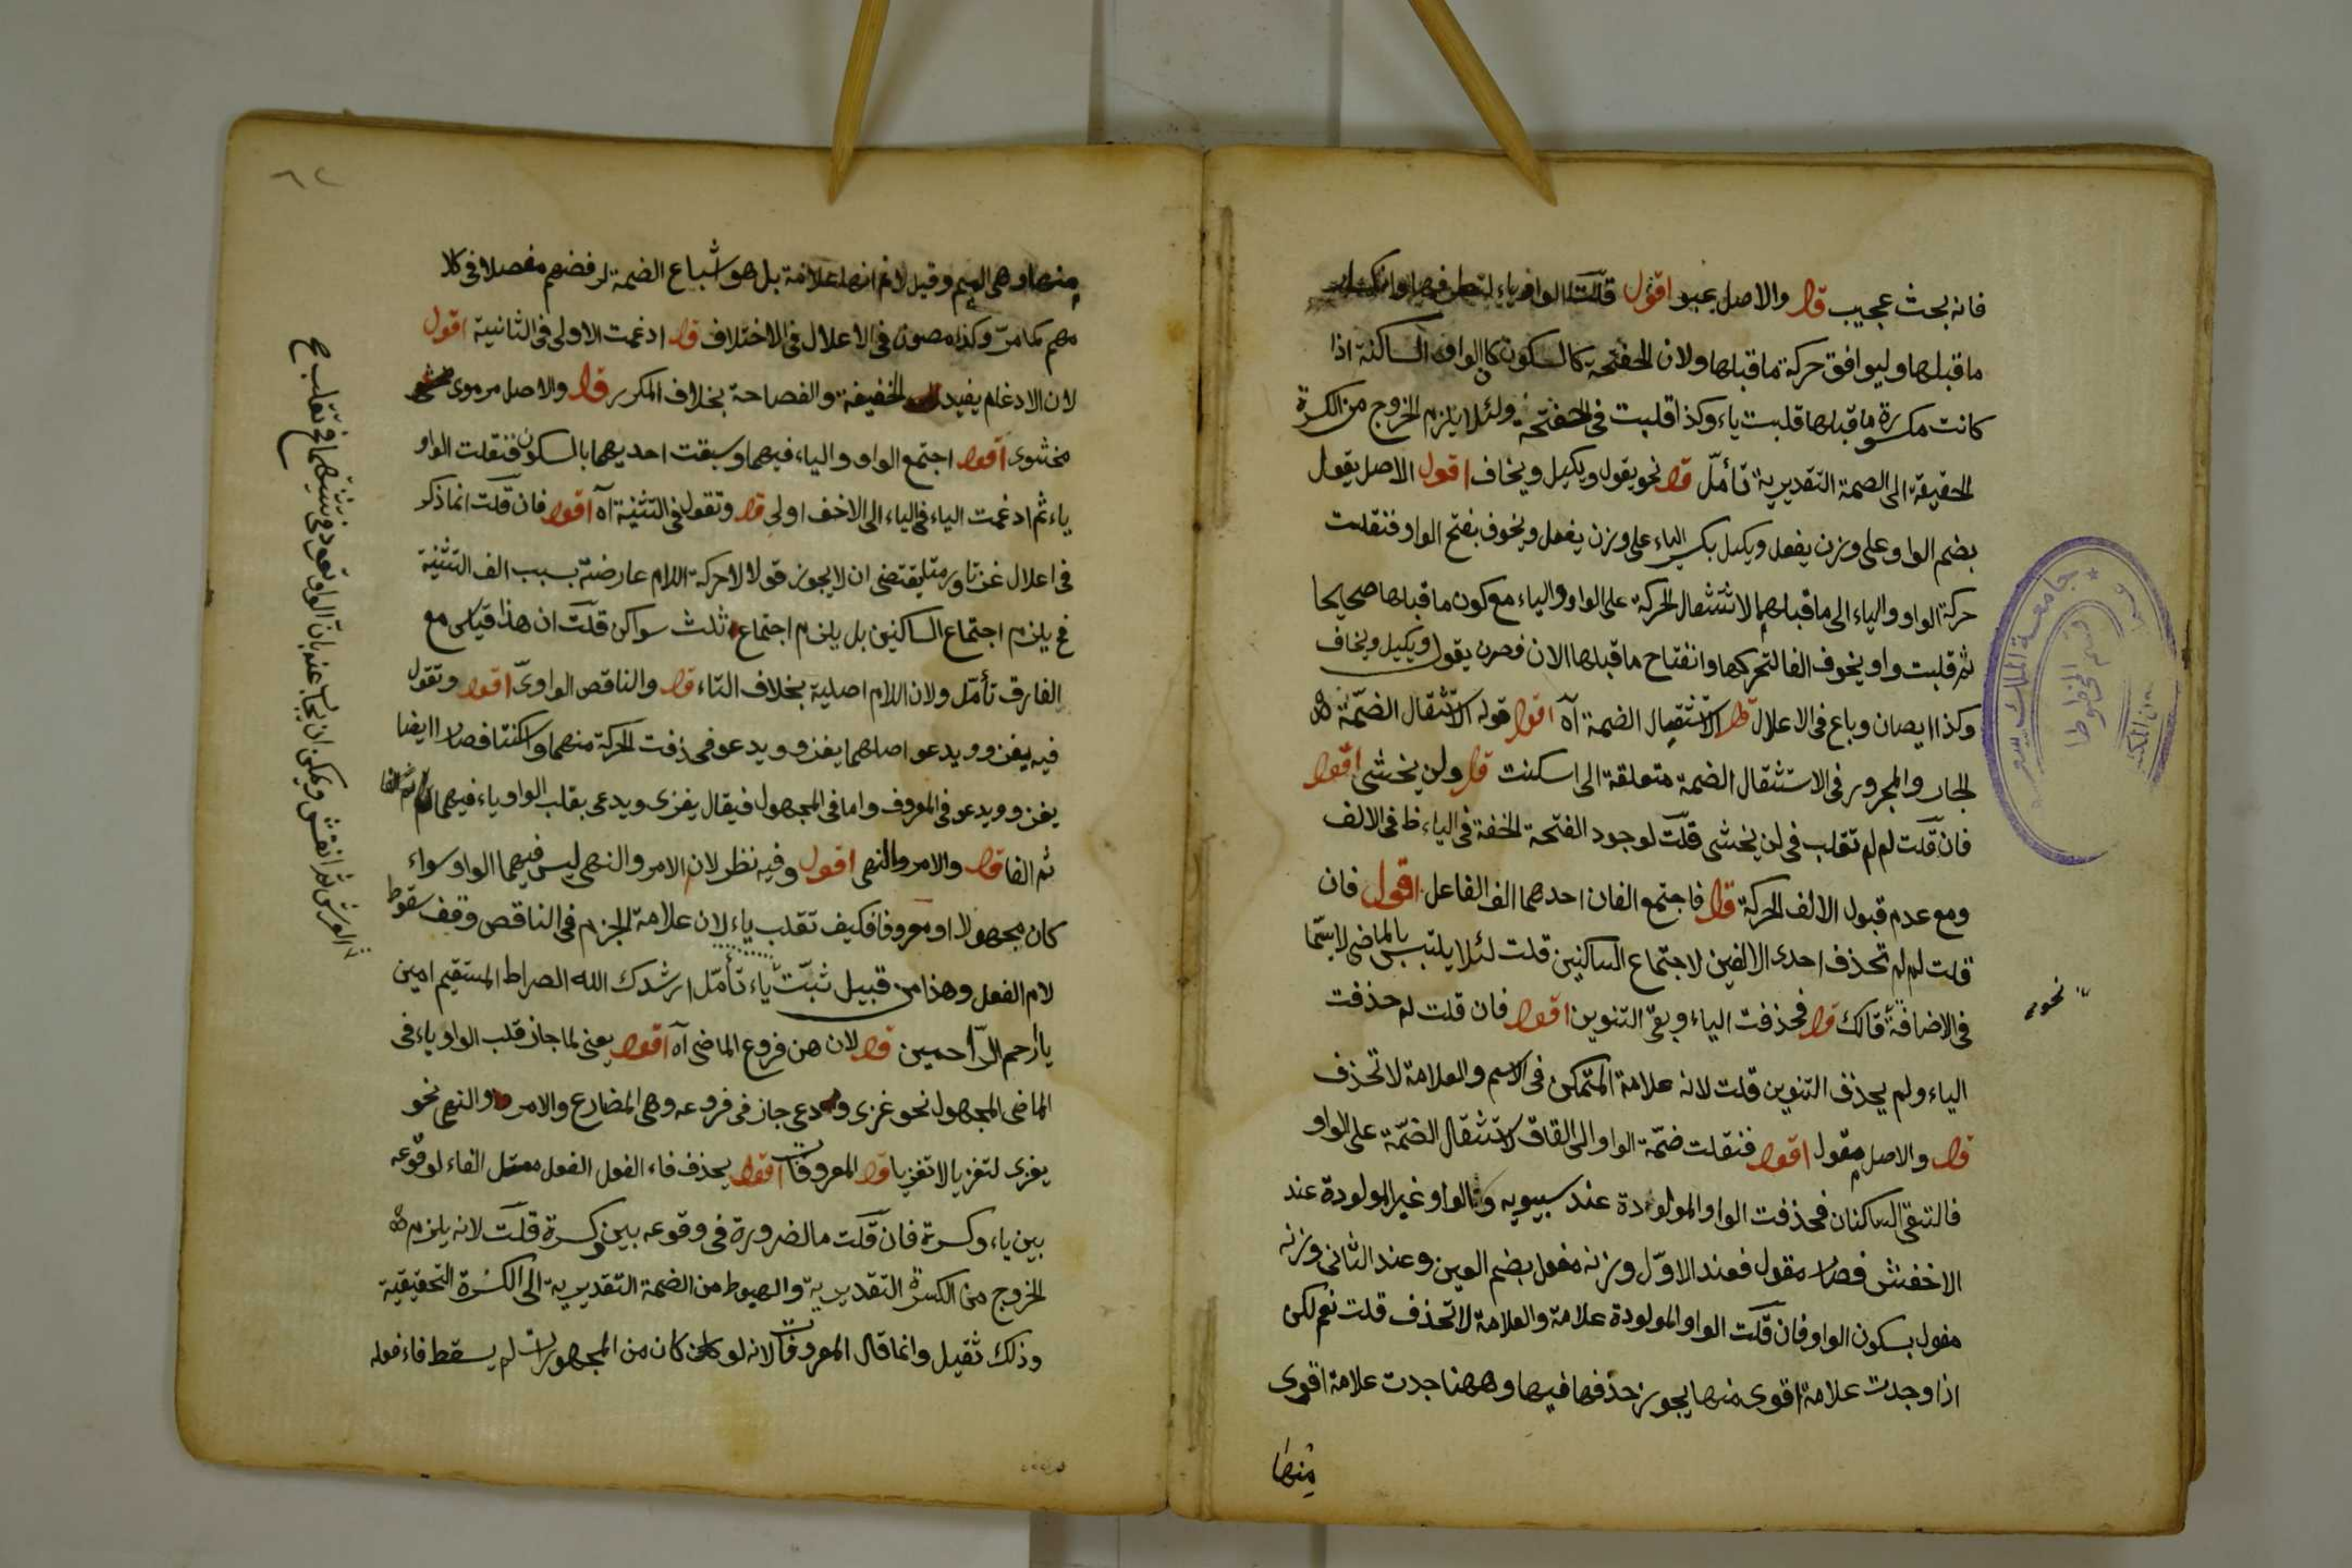 فانه بحث عجيب قوله والاصل غبيو اقول قلبت الواو ياء لتطرفها وانكسار
ما قبلها وليوافق حركة ما قبلها ولان الخفتحة كالسكون كالواو الساكنة اذا
كانت مكسورة ما قبلها قلبت ياء وكذا قلبت في الخفتحة ولئلا يلزم الخروج من الكسرة
الحقيقة الى الضمة التقديرية تأمّل قوله نحو يقول ويكيل ويخاف اقول الاصل يقول
بضم الواو على وزن يفعل ويكيل بكسر الياء على وزن يفعل ويخوف بفتح الواو فنقلت
حركة الواو والياء الى ما قبلهما لاستثقال الحركة على الواو والياء مع كون ما قبلها صحيحا
ثم قلبت واو يخوف الفا لتحركها وانفتاح ما قبلها الان فصرن يقول ويكيل ويخاف
وكذا يصان وباع في الاعلال قوله لاستثقال الضمة آه اقول قوله لاستثقال الضمّة
الجار والمجرور في الاستثقال الضمة متعلقة الى اسكنت قوله ولن يخشى اقول
فان قلت لم لم تقلب في لن يخشى قلت لوجود الفتحة الخفة في الياء ظ في الالف
ومع عدم قبول الالف الحركة قوله فاجتمع الفان احدهما الف الفاعل اقول فان
قلت لم لم تحذف احدى الالفين لاجتماع الساكنين قلت لئلا يلتبس بالماضي لا سيّما
في الاضافة قالك قوله فحذفت الياء وبقى التنوين اقول فان قلت لم حذفت
نحو
الياء ولم يحذف التنوين قلت لانه علامة المتمكن في الاسم والعلامة لا تحذف
قوله والاصل مقول اقول فنقلت ضمّة الواو الى القاف لاستثقال الضمّة على الواو
فالتقى الساكنان فحذفت الواو المولودة عند سيبويه والواو غير المولودة عند
الاخفش فصار مقول فعند الاوّل وزنه مفعل بضم العين وعند الثاني وزنه
مفول بسكون الواو فان قلت الواو المولودة علامة والعلامة لا تحذف قلت نعم لكن
اذا وجدت علامة اقوى منها يجوز حذفها فيها وههنا جدت علامة اقوى
منها
جامعة الملك سعود
قسم المخطوطا
٦٢
منها وهي الميم وقيل لا نم انها علامة بل هو اشباع الضمة لرفضهم مفعلا في كلا
مهم كما مرّ وكذا مصون في الاعلال في الاختلاف قوله ادغمت الاولى في الثانية اقول
لان الادغام يفيد الخفيفة والفصاحة بخلاف المكرر قوله والاصل مرموى
مخشوى اقول اجتمع الواو والياء فيهما وسبقت احديهما بالسكون فنقلت الواو
ياء ثم ادغمت الياء في الياء الى الاخف اولى قوله وتقول في التثنية آه اقول فان قلت انما ذكر
في اعلال غزتا ورمتا يقتضى ان لا يجوز قولا لا حركة اللام عارضة بسبب الف التثنية
فح يلزم اجتماع الساكنين بل يلزم اجتماع ثلث سواكن قلت ان هذا قياس مع
الفارق تأمّل ولان اللام اصلية بخلاف التاء قوله والناقص الواوىّ اقول وتقول
فيه يغزو ويدعو اصلهما يغزو ويدعو فحذفت الحركة منهما واسكنتا فصارا ايضا
يغزو ويدعو في المعروف واما في المجهول فيقال يغزى ويدعى بقلب الواو ياء فيهما
ثم الفا قوله والامر والنهى اقول وفيه نظر لان الامر والنهى ليس فيهما الواو سواء
كان مجهولا او معروفا فكيف تقلب ياء لان علامة الجزم في الناقص وقف سقوط
لام الفعل وهذا من قبيل ثبتّ ياء تأمّل ارشدك الله الصراط المستقيم امين
يا ارحم الرّاحمين قوله لان هن فروع الماضى آه اقول يعنى لما جاز قلب الواو ياء في
الماضى المجهول نحو غزى ودعى جاز في فروعه وهي المضارع والامر والنهى نحو
يغزى لتغزيا لا تغزيا قوله المعروفات اقول يحذف فاء الفعل الفعل معتل الفاء لوقوعه
بين ياء وكسرة فان قلت ما الضرورة في وقوعه بين وكسرة قلت لانه يلزم
الخروج من الكسرة التقديرية والهبوط من الضمة التقديرية الى الكسرة التحقيقية
وذلك ثقيل وانما قال المعروفات لانه لو كان من المجهورات لم يسقط فاء فعله
العرش ثم انقش ويمكن ان يجاب عنه بانّ الواو تعود في تثنيتهما فح تقلب